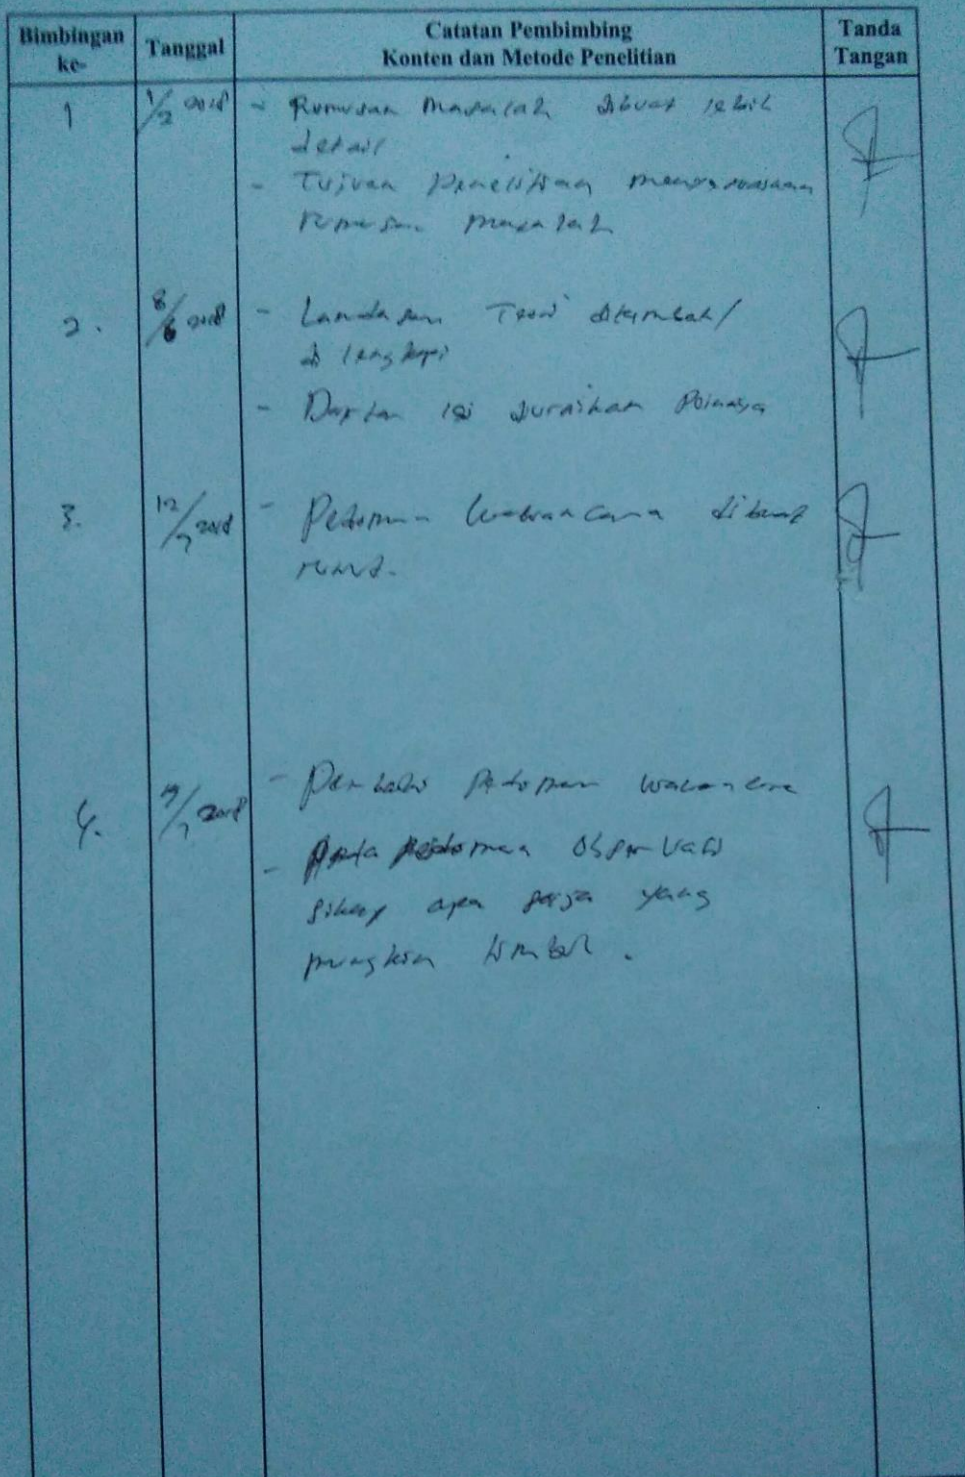 Bimbingan ke- Tanggal Catatan Pembimbing Konten dan Metode Penelitian Tanda Tangan
1 1/2 2018 - Rumusan masalah dibuat lebih
detail
- Tujuan Penelitian
rumusan masalah
2. 8/6 2018 - Landasan Teori ditambah/
dilengkapi
- Daftar isi diuraikan Poinnya
3. 12/7 2018 - Pedoman wawancara dibuat
runut.
4. /7 2018 - Perbaiki Pedoman wawancara
- Pedoman Observasi
sikap apa saja yang
mungkin timbul.